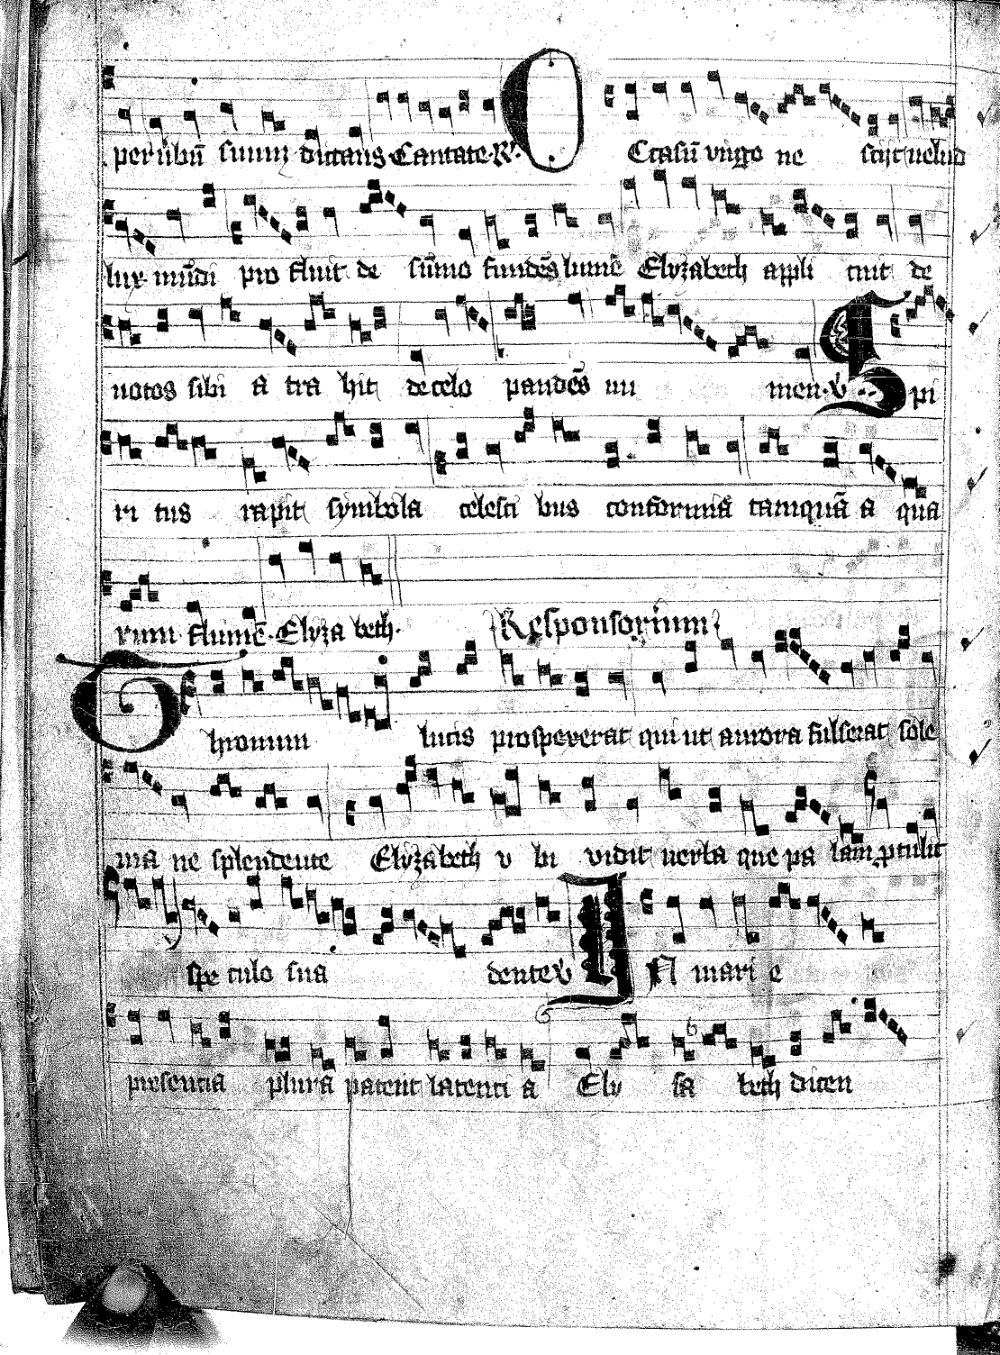 per úbū suum dictans Cantate. R.
O Ccasū virgo ne scijt uelud
lux mūdi pro fluit de sūmo fundēs lumē Elyzabeth appli cuit de
uotos sibi a tra hit de celo pandēs nu men. V S pi
ri tus rapit symbola celesti bus conformiā tamquā a quā
rum flumē. Elyza beth. Responsorium
T hronum lucis prospexerat qui ut aurora fulserat sole
ma ne splendente Elyzabeth v bi vidit uerba que pa lam ptulit
spe culo sua dente V I N mari e
presentia plura patent latenti a Ely sa beth dicen